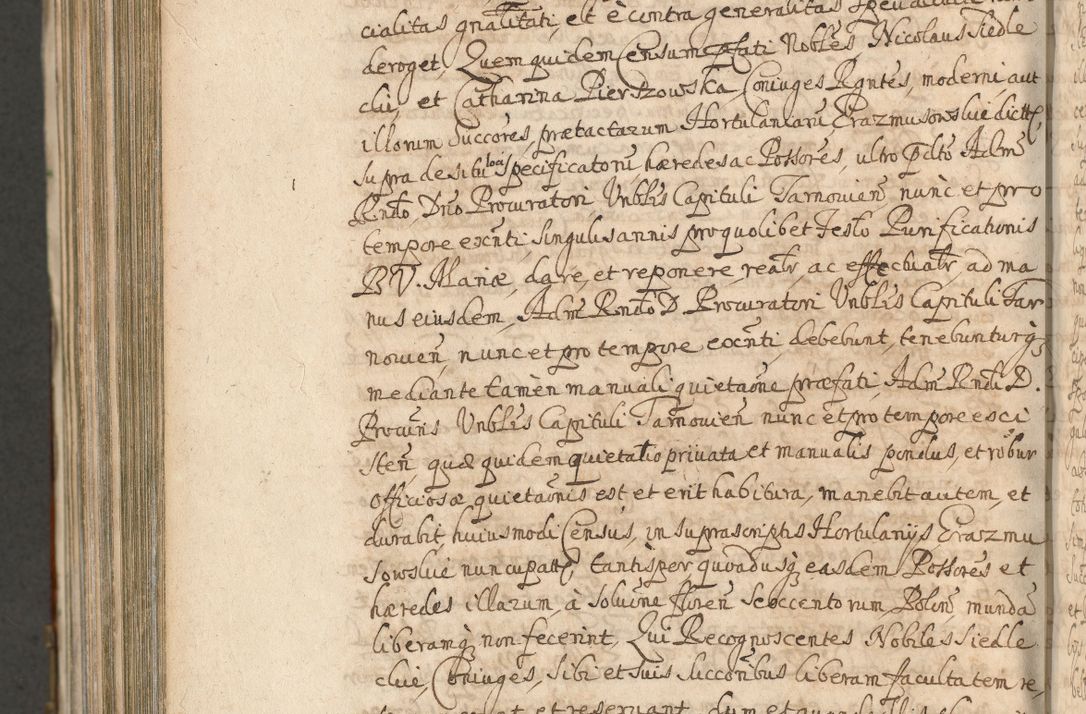 cialitas gnalitati, et è contra generalitas
deroget, Quem quidem Censum pfati Nobles Nicolaus Siedle
clii, et Catharina Pierszowska, Coniuges Rgntes, moderni, aut
illorum Succores, prætactarum Hortulaniarũ, Erazmusowskie dictt,
supra de sibi loci specificatorũ, hæredes ac Possores, ultro pdto Adm
Rndo Dno Procuratori Vnblis Capituli Tarnovien nunc et pro
tempore excnti, singulis annis pro quolibet Festo Purificationis
B V. Mariæ, dare, et reponere, realr, ac effectualr, ad ma
nus eiusdem, Adm Rndo D Procuratori Vnblis Capituli Tar
novien, nunc et pro tempore excnti, debebunt, tenebunturq3
mediante tamèn manuali quietaõne præfati, Adm Rndi D.
Procuris Vnblis Capituli Tarnovien nunc et pro tempore exci
sten, quæ quidem quietatio privata et manualis pondus, et robur
officiosæ quietaõnis est et erit habitura, manebit autem, et
durabit, huiusmodi Census, in suprascriptis Hortulanijs Erazmu
sowskie nuncupatt, tantisper quoadusq3 easdem Possores et
hæredes illarum, à soluõne floren Seccentorum, Polon, munda
liberamq3 non fecerint, Qui Recognoscentes Nobiles Siedle
clii, Coniuges, sibi et suis succoribus liberam facultatem re,
et reservant, dum et quando